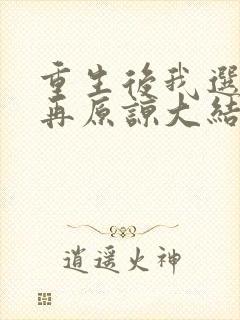 重生後我選
再原諒大結
逍遥火神